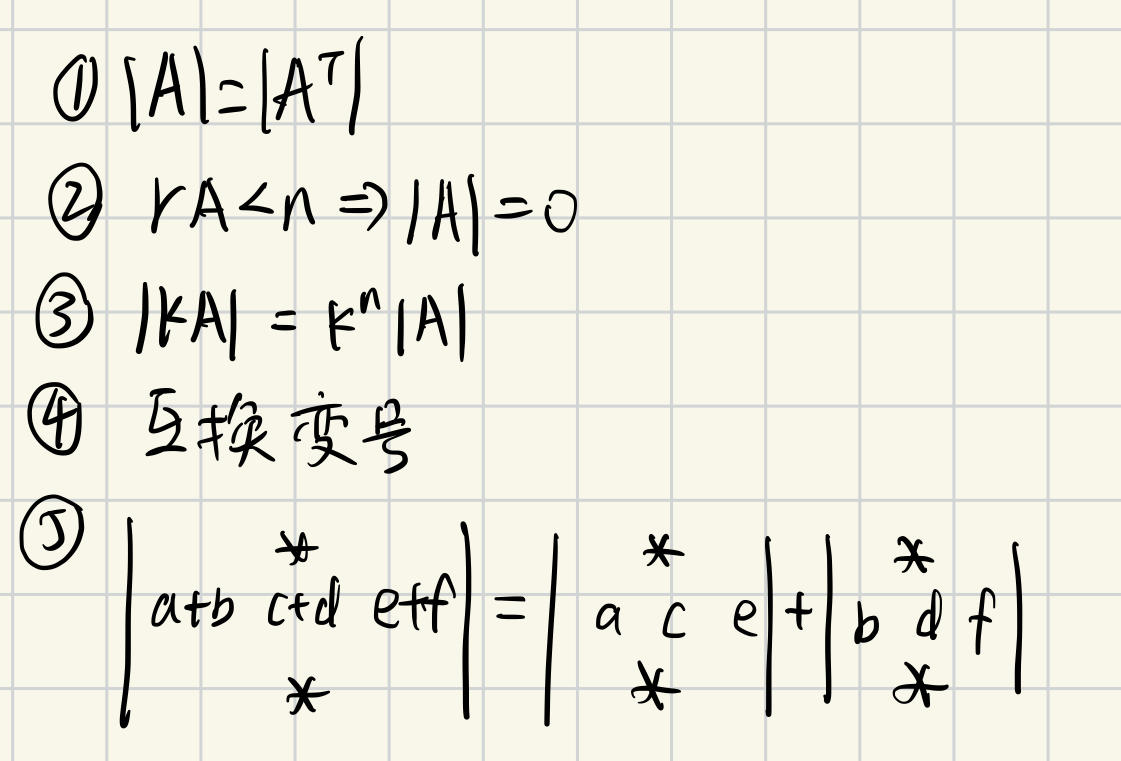 ① |A|=|Aᵀ|
② rA<n⇒|A|=0
③ |kA| = kⁿ|A|
④ 互换变号
⑤
* * *
|a+b c+d e+f| = |a c e| + |b d f|
* * *